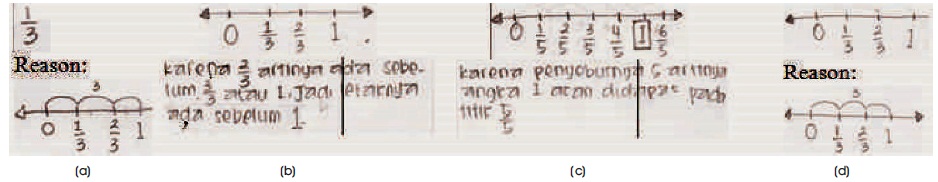 1/3
Reason:
3
0 1/3 2/3 1
(a)
0 1/3 2/3 1
karena 2/3 artinya ada sebe-
lum 3/3 atau 1. Jadi letaknya
ada sebelum 1.
(b)
0 1/5 2/5 3/5 4/5 1 6/5
karena penyebutnya 5 artinya
angka 1 akan didapat pada
titik 5/5
(c)
0 1/3 2/3 1
Reason:
3
0 1/3 2/3 1
(d)